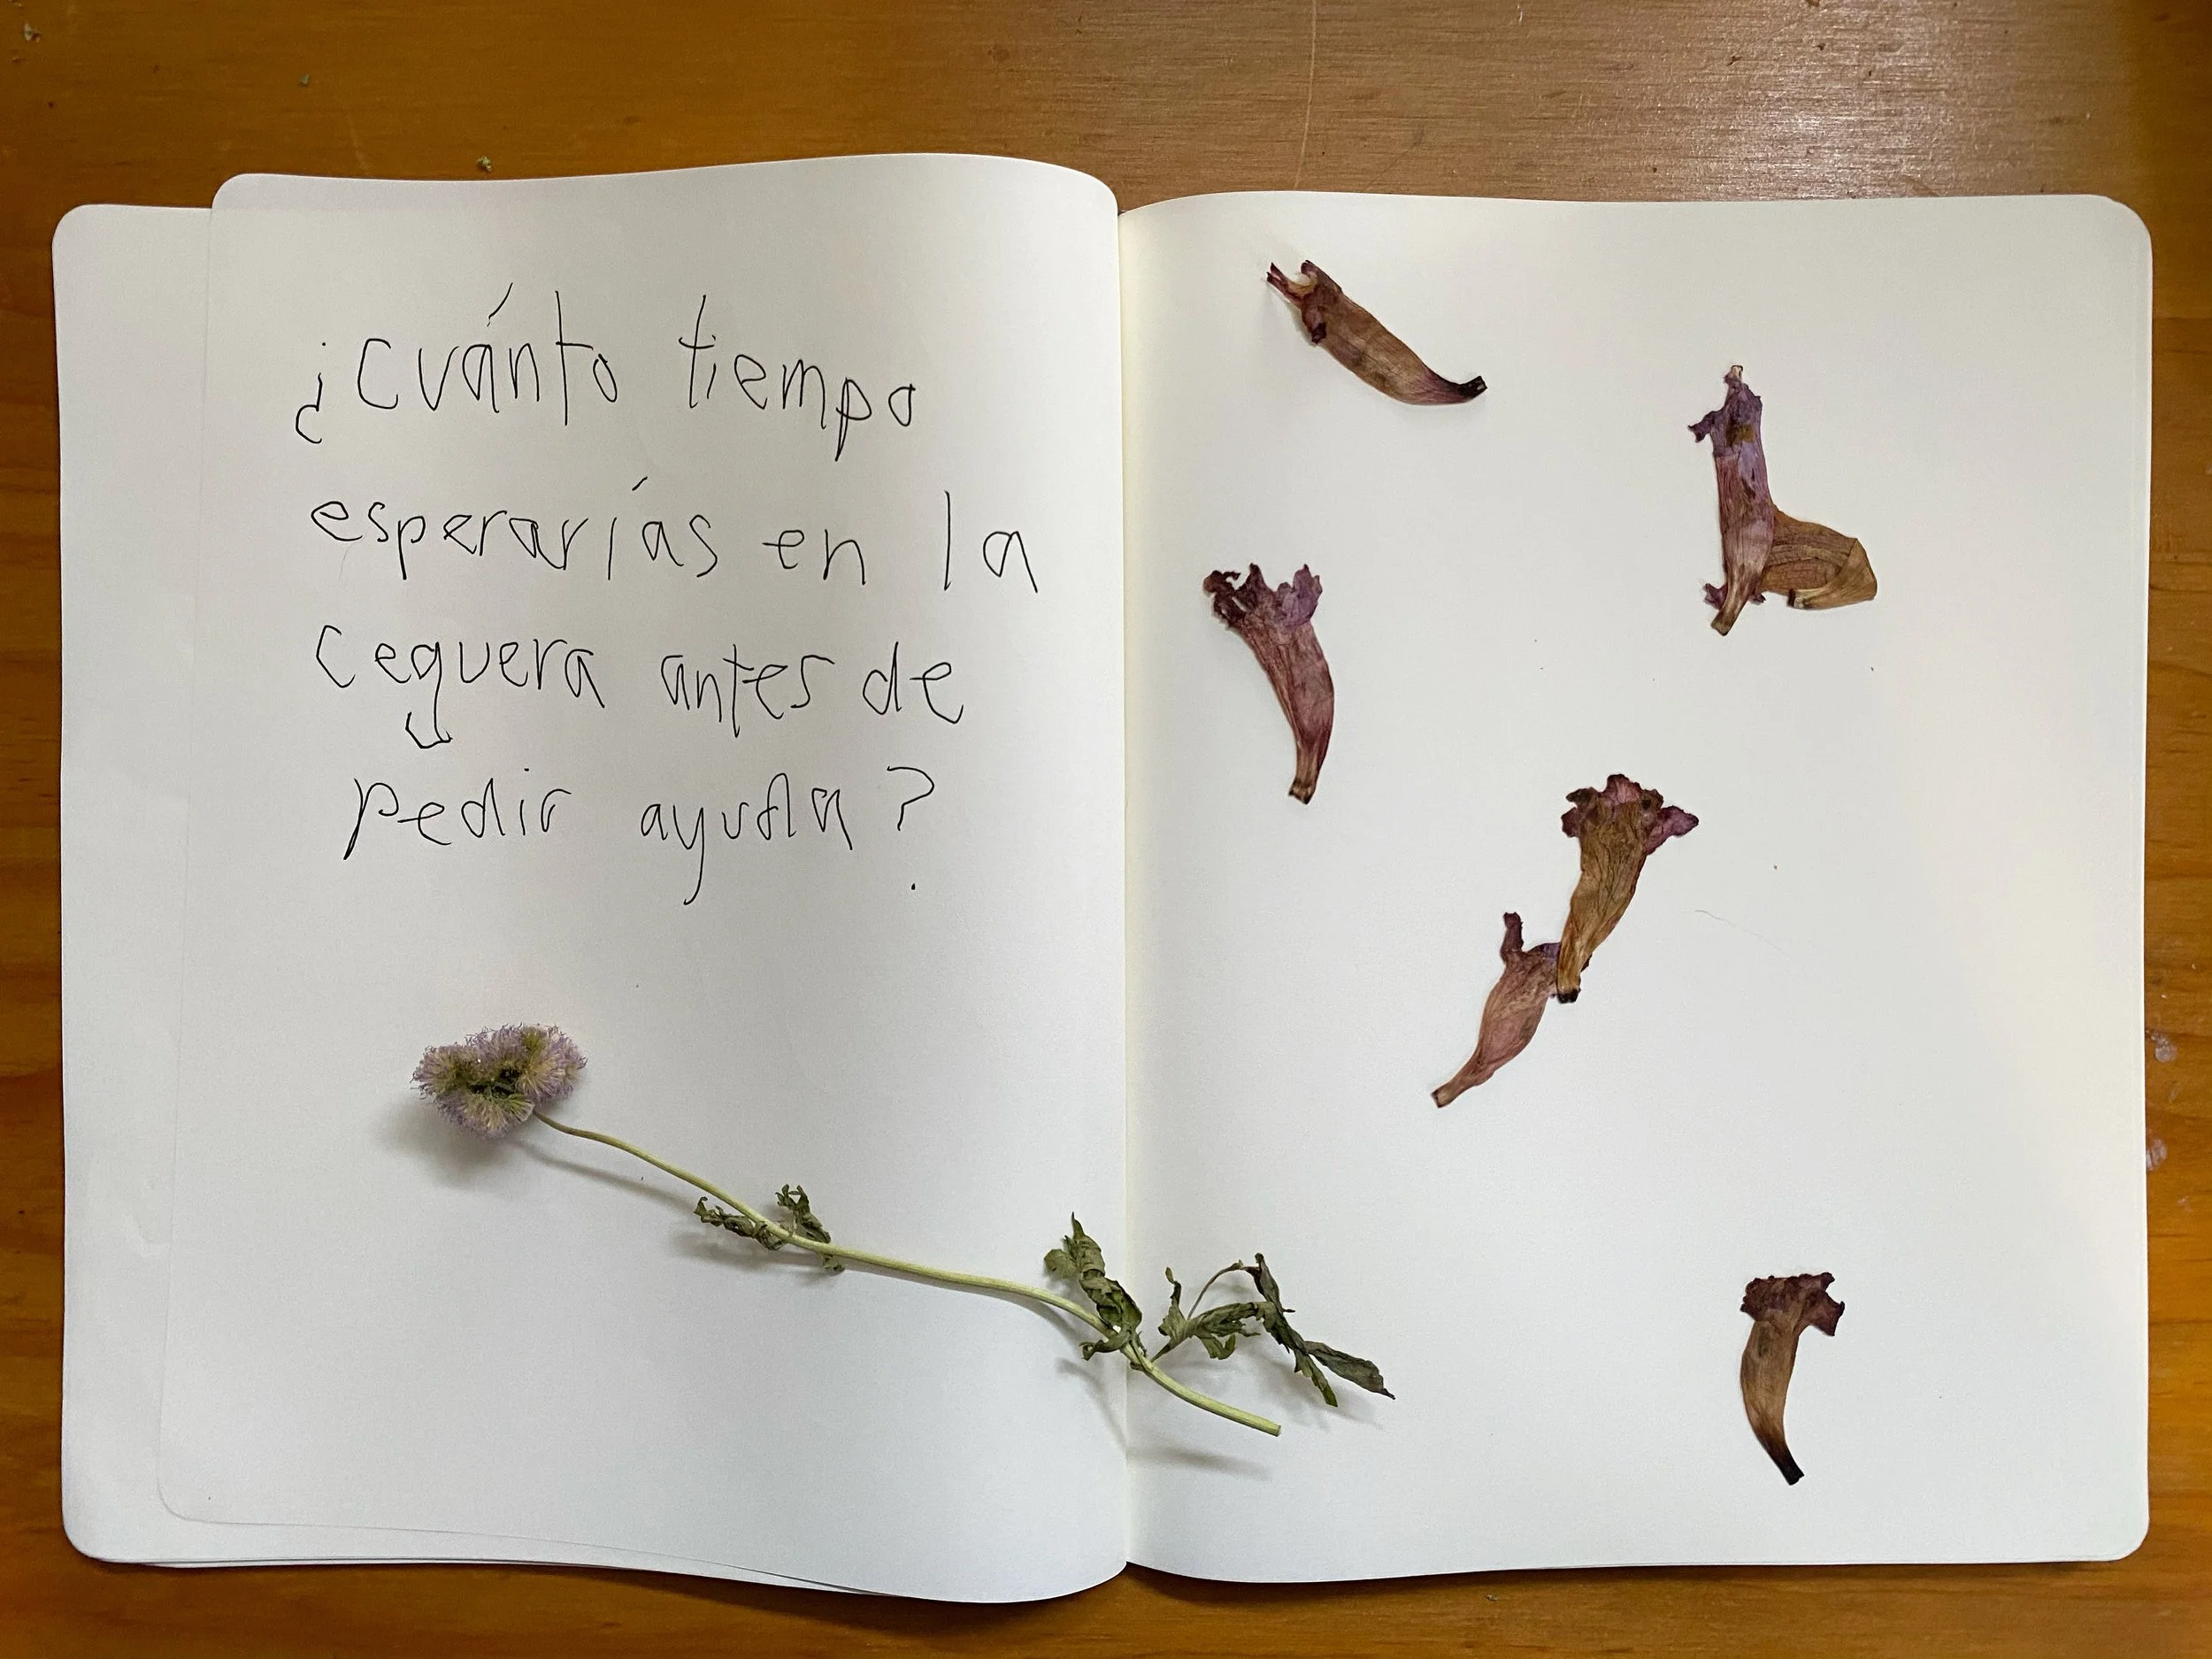 ¿cuánto tiempo
esperarías en la
ceguera antes de
pedir ayuda?